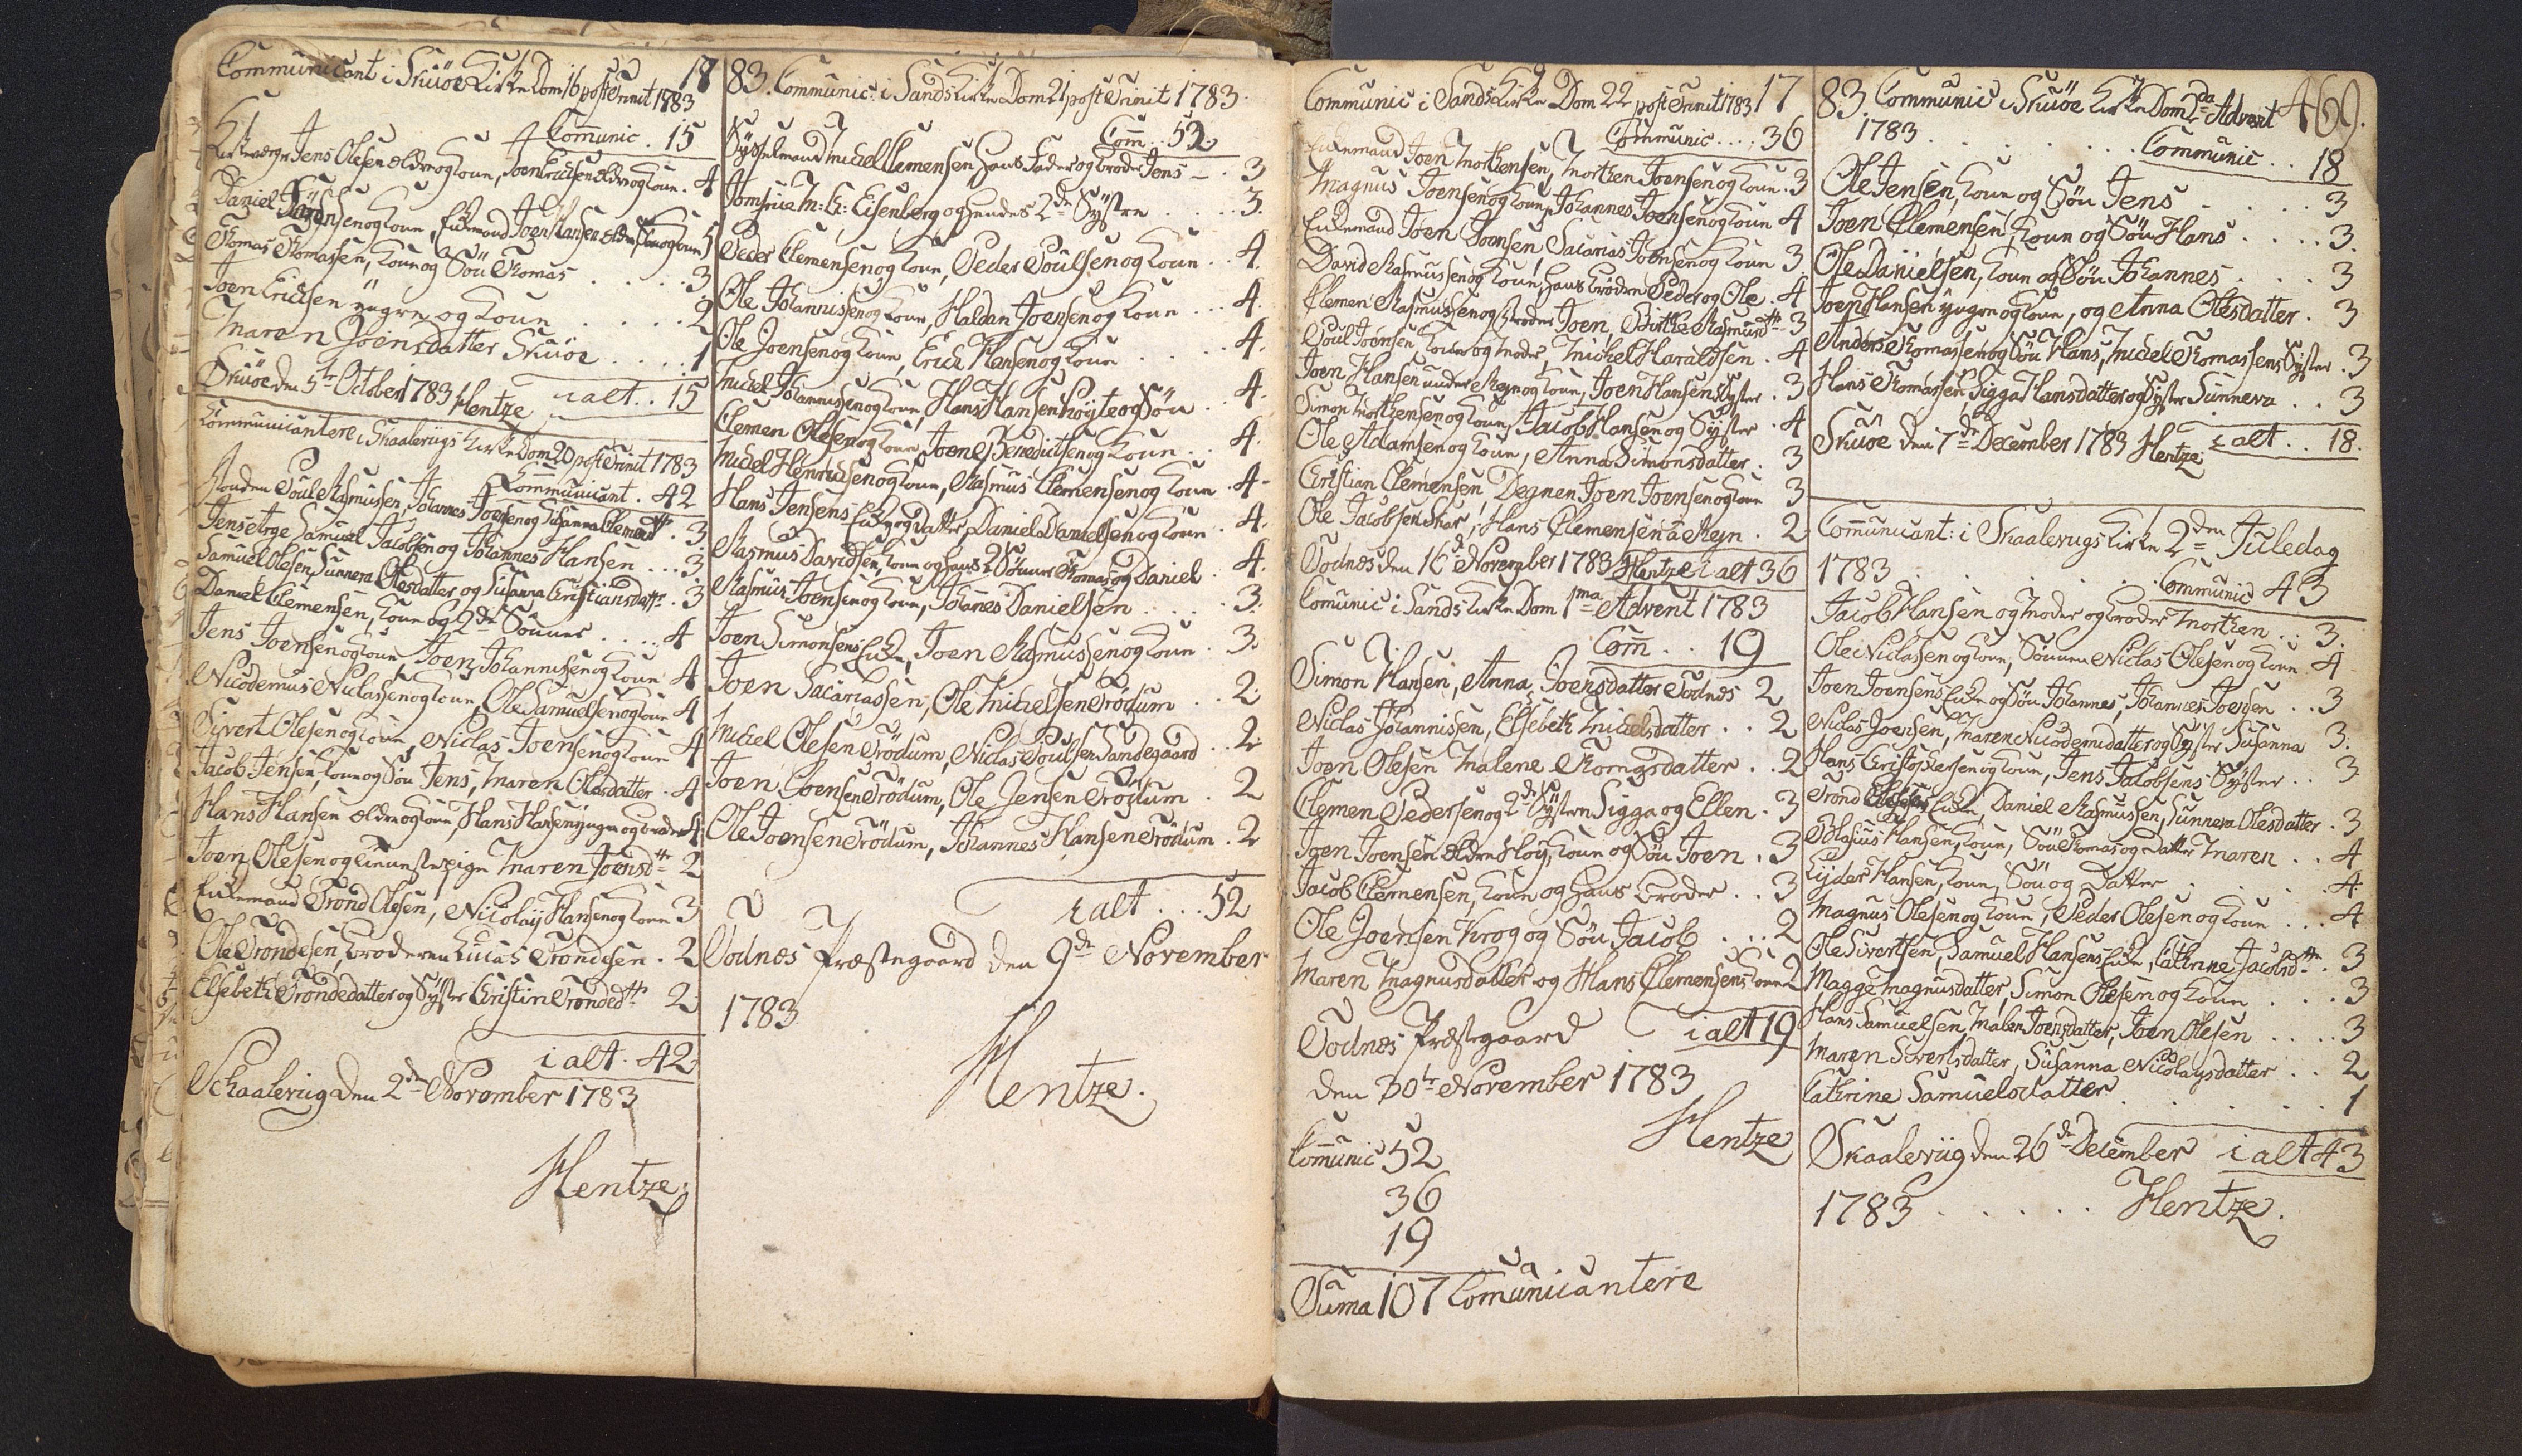 Communicant i Skuöe Kirke Dom 16 post Trinit 1783
17
Communic. 15
Kirkeværger Jens Olesen ældre og Kone, Joen Ericksen ældre og Kone. 4
Daniel og Kone, Enkemand Joen Hansen og Kone 5
Thomas Thomassen, Kone og Sön Thomas . . . . 3
Joen Ericksen yngre og Kone . . . . 2
Maren Joensdatter Skuöe . . . 1
i alt . . 15
Skuöe den 5te October 1783 Hentze
Communicantere i Skaalevügs Kirke Dom 20 post Trinit 1783
Communicant . 42
Bonden Poul Rasmussen, Johannes Joensen og Susanna Clemendttr . 3
Jens Samuel Jacobsen og Johannes Hansen ... 3
Samuel Olesen, Sunneva Olesdatter og Susanna Christiansdattr . 3
Daniel Clemensen, Kone og 2de Sönner . . . . 4
Jens Joensen og Kone, Joen Johannisen og Kone 4
Nicodemus Niclassen og Kone, Ole Samuelsen og Kone 4
Sivert Olesen og Kone, Niclas Joensen og Kone 4
Jacob Jensen, Kone og Sön Jens, Maren Olesdatter . 4
Hans Hansen ældre og Kone, Hans Hansen yngre og broder 4
Joen Olesen og tieneste pige Maren Joensdttr 2
Enkemand Trond Olesen, Nicolaij Hansen og Kone 3
Ole Trondesen, broderen Lucas Trondesen . 2
Elsebeth Trondedatter og Syster Christin Trondedttr 2
i alt . 42
Skaalevüg den 2de November 1783
Hentze
83. Communic: i Sands Kirke Dom 21 post Trinit 1783.
Com . 52
Sysselmand Michel Clemensen, hans Fader og broder Jens - . 3
Jomfrue M: C: Eisenberg og hendes 2de Systre . . . . 3.
Peder Clemensen og Kone, Peder Poulsen og Kone . . 4.
Ole Johannisen og Kone, Haldan Joensen og Kone ... 4.
Ole Joensen og Kone, Erick Hansen og Kone . . . . 4.
Michel Johannisen og Kone, Hans Hansen og Sön . . 4.
Clemen Olesen og Kone, Joen Benedictsen og Kone . . 4.
Michel Henrichsen og Kone, Rasmus Clemensen og Kone . 4-
Hans Jensens Enke og datter, Daniel Danielsen og Kone . 4.
Rasmus Davidsen, Kone og hans 2 Sönner Thomas og Daniel . 4.
Rasmus Joensen og Kone, Johannes Danielsen . . . . 3.
Joen Simonsens Enke, Joen Rasmussen og Kone . 3.
Joen Sacariassen, Ole Michelsen Trödum . . 2.
Michel Olesen Trödum, Niclas Poulsen Sandegaard . . 2.
Joen Joensen Trödum, Ole Jensen Trödum . 2
Ole Joensen Trödum, Johannes Hansen Trödum . 2
i alt . . . 52
Todnes Præstegaard den 9de November
1783
Hentze.
Communic i Sands Kirke Dom 22 post Trinit 1783
17
Communic . . . . 36
Enkemand Joen Mortensen, Morten Joensen og Kone . 3
Magnus Joensen og Kone, Johannes Joensen og Kone 4
Enkemand Joen Joensen, Sacarias Joensen og Kone 3
David Rasmussen og Kone, hans brödre Peder og Ole . 4
Clemen Rasmussen og broder Joen, Birthe Rasmusdttr 3
Poul Joensen Kone og moder, Michel Haraldsen . 4
Joen Hansen under Reyn og Kone, Joen Hansens Syster . 3
Simon Mortensen og Kone, Jacob Hansen og Syster . 4
Ole Adamsen og Kone, Anna Simonsdatter . 3
Christian Clemensen, Degnen Joen Joensen og Kone 3
Ole Jacobsen Skar, Hans Clemensen å Reyn . 2
i alt 36
Todnes den 16de November 1783 Hentze
Comunic i Sands Kirke Dom 1ma Advent 1783
Com . . 19
Simon Hansen, Anna Joensdatter Todnes 2
Niclas Johannissen, Elsebeth Michelsdatter . . 2
Joen Olesen Malene Thomasdatter . . 2
Clemen Pedersen og 2de Systern Sigga og Ellen . 3
Joen Joensen ældre Höy, Kone og Sön Joen . 3
Jacob Clemensen, Kone og hans broder . . 3
Ole Joensen Krog og Sön Jacob . . . 2
Maren Magnusdatter og Hans Clemensens Kone 2
i alt 19
Todnes Præstegaard
den 30te November 1783
Hentze
Comunic 52
36
19
Suma 107 Comunicantere
83. Communic i Skuöe Kirke Dom 2da Advent
469.
1783 . . . . . . . Communic . . 18
Ole Jensen, Kone og Sön Jens . . . . 3
Joen Clemensen, Kone og Sön Hans . . . . 3.
Ole Danielsen, Kone og Sön Johannes . . . 3
Joen Hansen yngre og Kone, og Anna Olesdatter . 3
Anders Thomassen og Sön Hans, Michel Thomassens Syster . 3
Hans Thomassen, Sigga Hansdatter og Syster Sunneva . . 3
i alt . . 18.
Skuöe den 7de December 1783 Hentze
Communicant: i Skaalevugs Kirke 2den Juledag
1783 . . . . . . Communic 43
Jacob Hansen og moder og broder Morten . . 3.
Ole Niclasen og Kone, Sönnen Niclas Olesen og Kone 4
Joen Joensens Enke og Sön Johannes, Johannes Joensen . . 3
Niclas Joensen, Maren Nicodemidatter og Syster Susanna 3.
Hans Christophersen og Kone, Jens Jacobsens Syster . . 3
Trond Enke, Daniel Rasmussen, Sunneva Olesdatter . 3
Blasius Hansen, Kone, Sön Thomas og datter Maren . . 4
Lyder Hansen, Kone, Sön og Datter . . . . 4.
Magnus Olesen og Kone, Peder Olesen og Kone . . . 4
Ole Sivertsen, Samuel Hansens Enke, Cathrine Jacobsdttr . 3
Magga Magnusdatter, Simon Olesen og Kone . . . 3
Hans Samuelsen, Malen Joensdatter, Joen Olesen . . . . 3
Maren Sivertsdatter, Susanna Nicolaysdatter . . 2
Cathrine Samuelsdatter . . . . . . 1
Skaalevüg den 26de December i alt 43
1783 . . . . . Hentze.